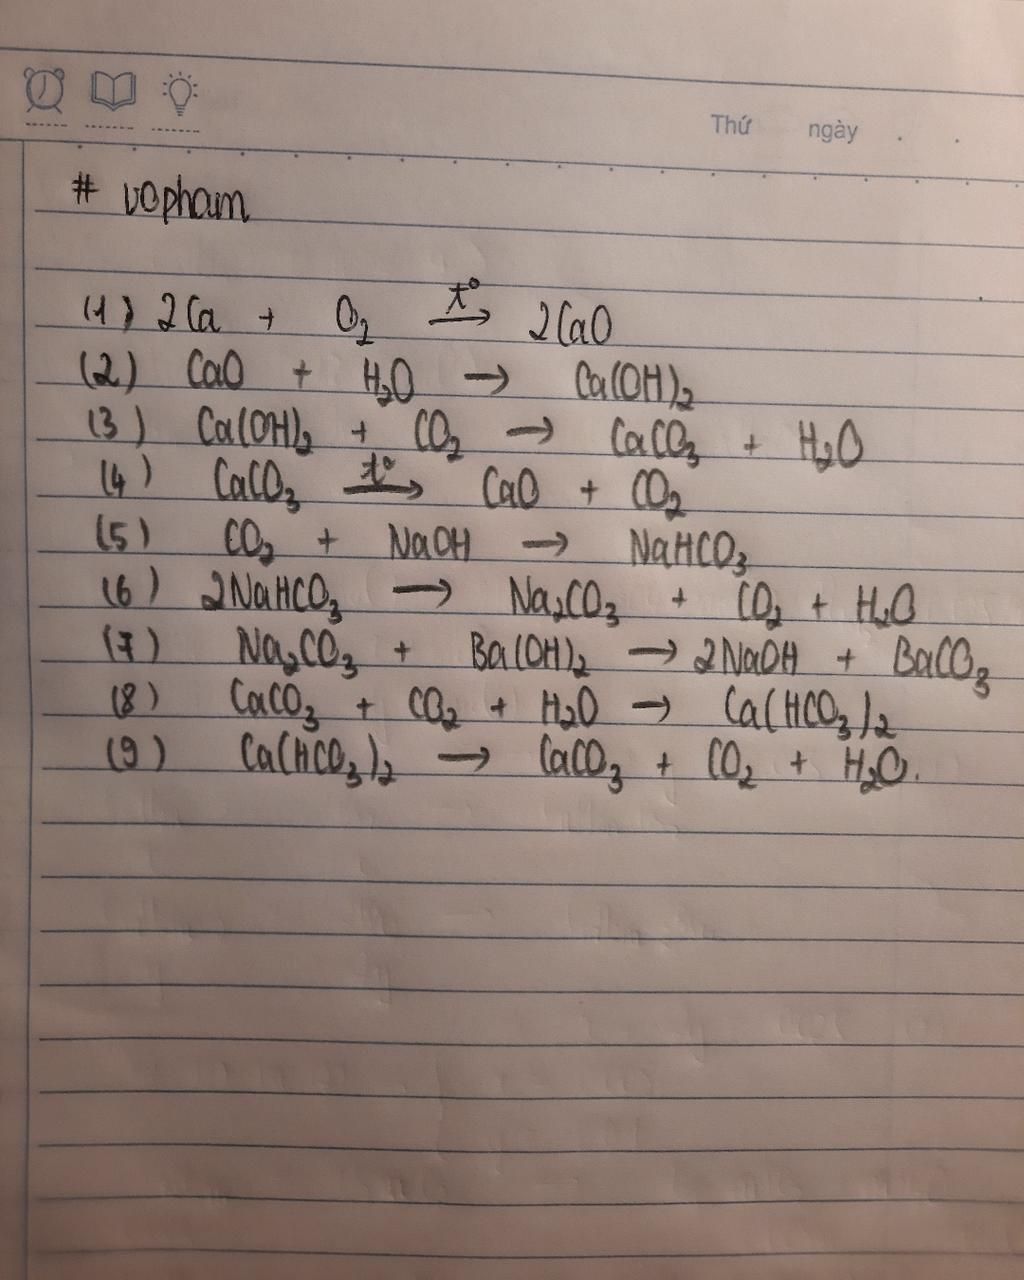 Thứ ngày . .
# vopham
(1) 2Ca + O₂ t° → 2CaO
(2) CaO + H₂O → Ca(OH)₂
(3) Ca(OH)₂ + CO₂ → CaCO₃ + H₂O
(4) CaCO₃ t° → CaO + CO₂
(5) CO₂ + NaOH → NaHCO₃
(6) 2NaHCO₃ → Na₂CO₃ + CO₂ + H₂O
(7) Na₂CO₃ + Ba(OH)₂ → 2NaOH + BaCO₃
(8) CaCO₃ + CO₂ + H₂O → Ca(HCO₃)₂
(9) Ca(HCO₃)₂ → CaCO₃ + CO₂ + H₂O.